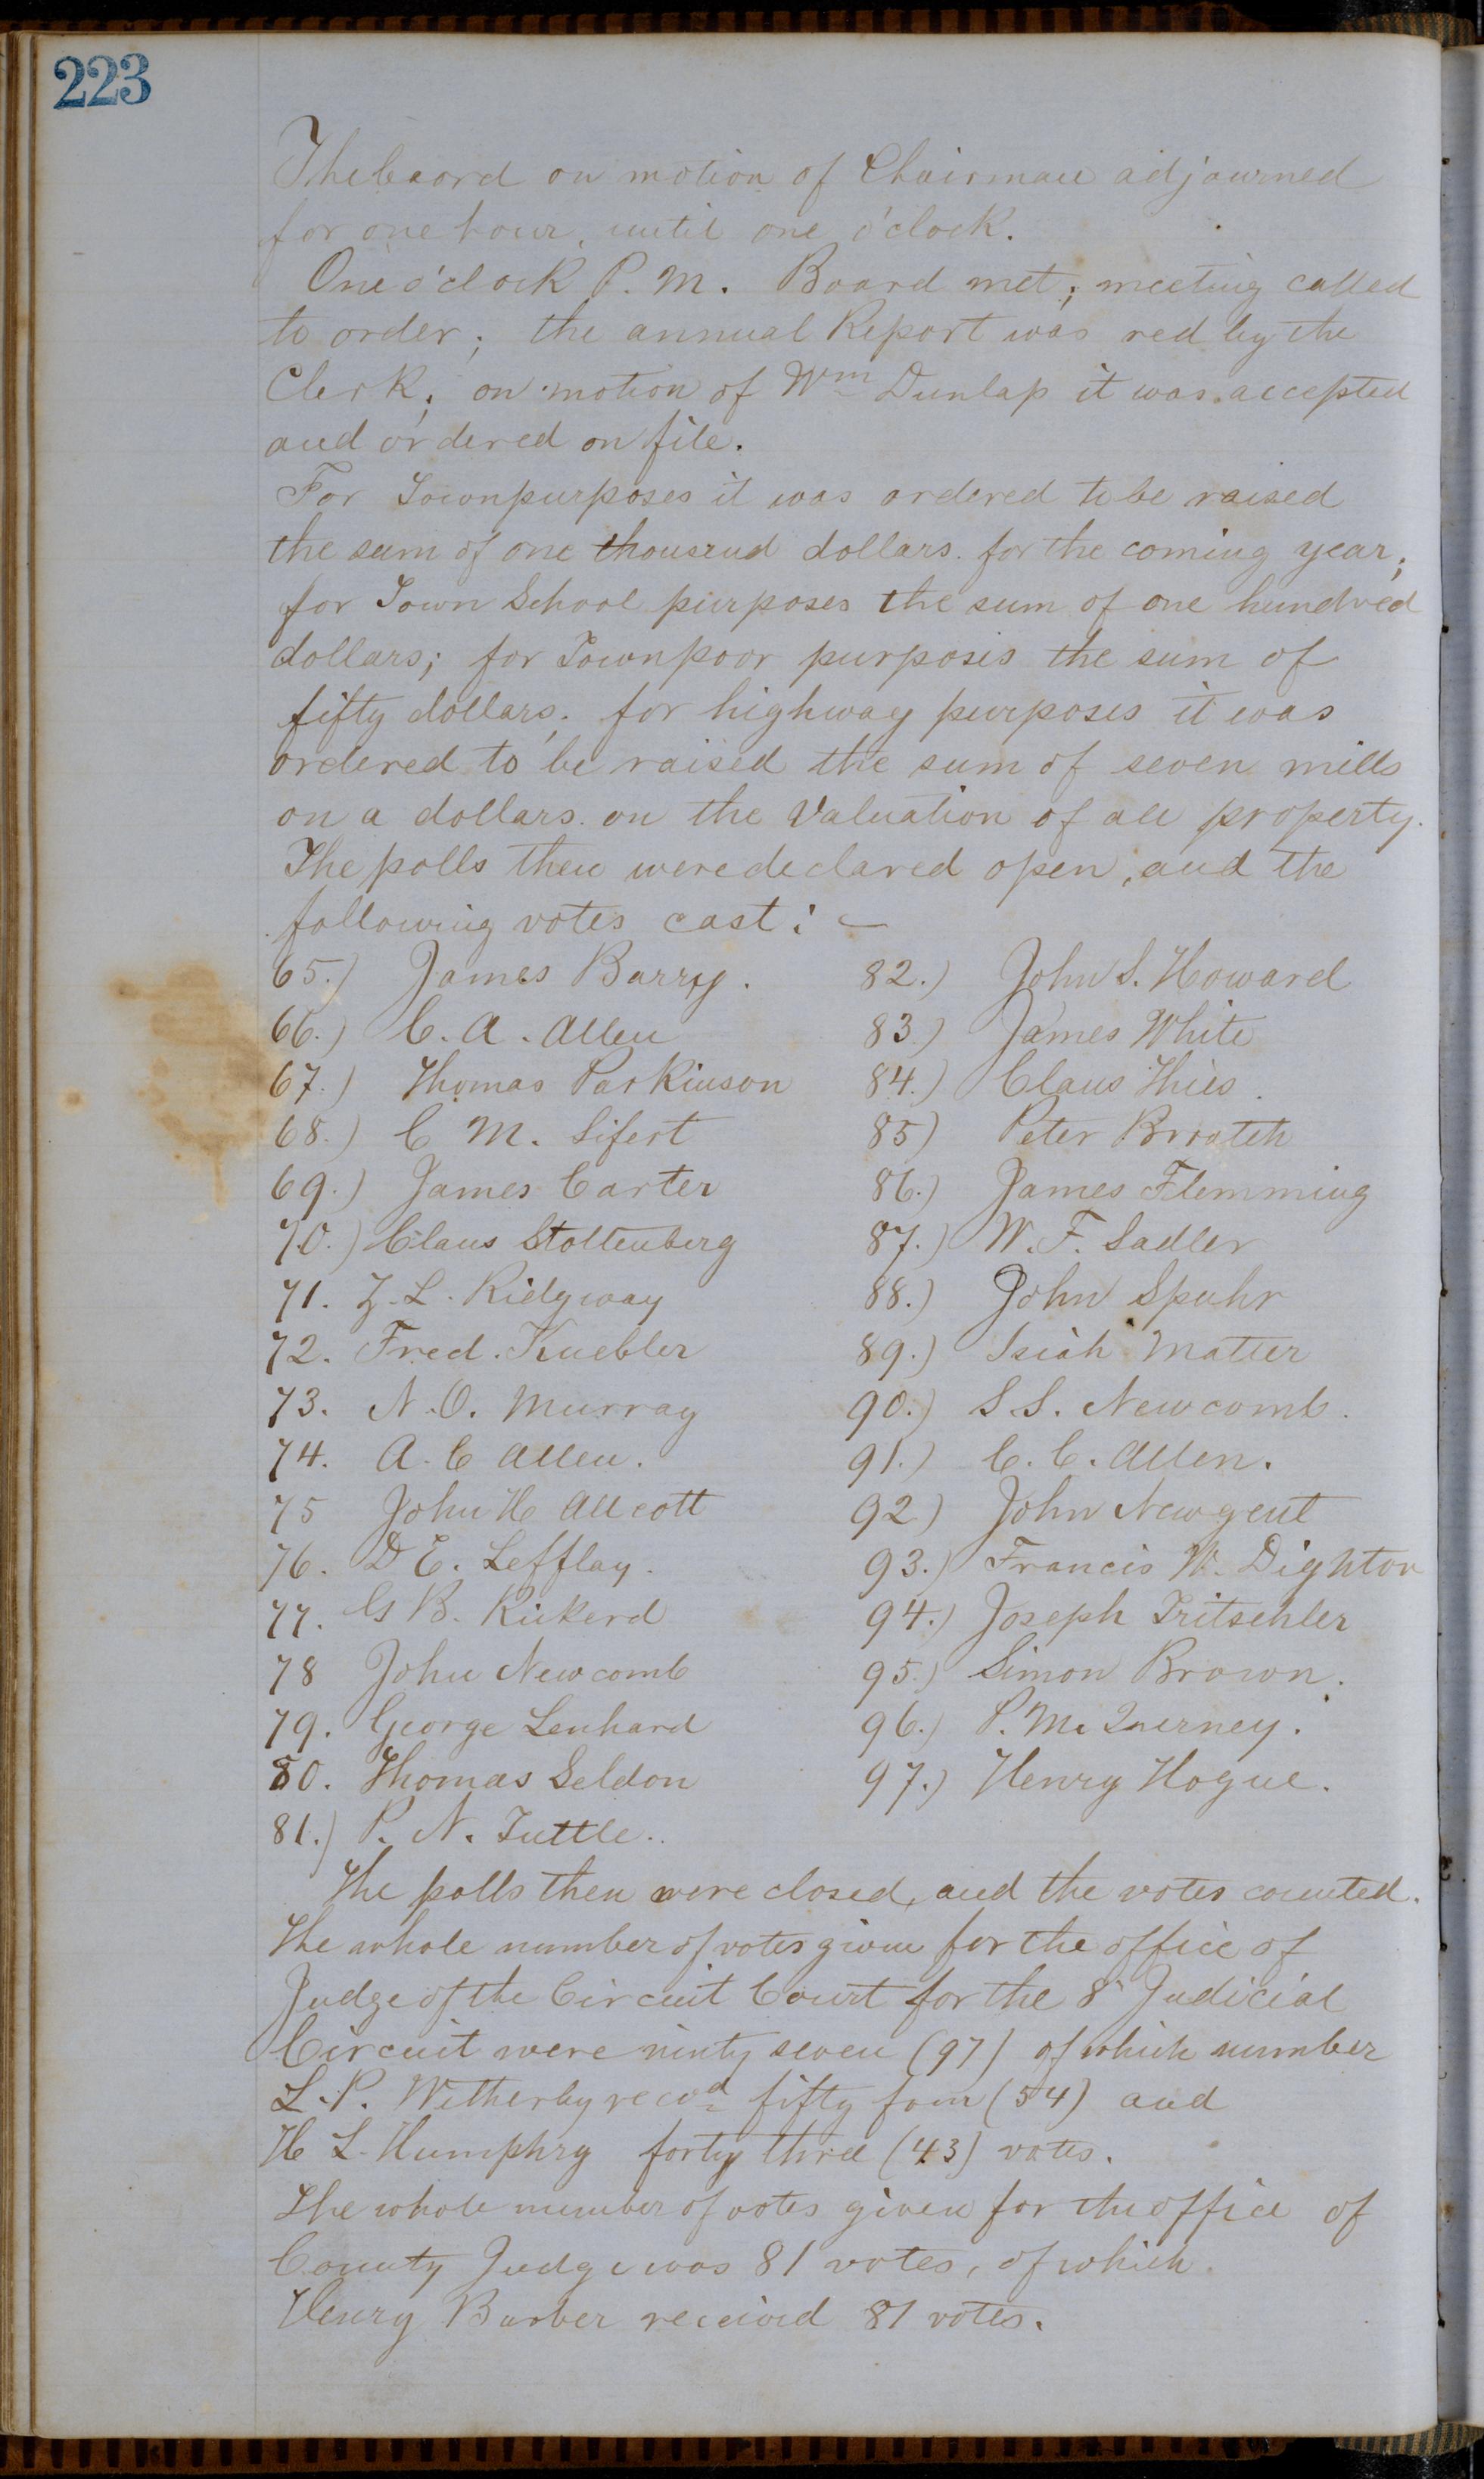 223
The board on motion of Chairman adjourned
for one hour, until one o'clock.
One o'clock P. M. Board met; meeting called
to order; the annual Report was red by the
Clerk; on motion of Wm Dunlap it was accepted
and ordered on file.
For Townpurposes it was ordered to be raised
the sum of one thousand dollars for the coming year;
for Town School purposes the sum of one hundred
dollars; for Townpoor purposes the sum of
fifty dollars; for highway purposes it was
ordered to be raised the sum of seven mills
on a dollars on the Valuation of all property.
The polls then were declared open, and the
following votes cast: —
65.) James Barry.
66.) C. A. Allen
67.) Thomas Parkinson
68.) C M. Sifert
69.) James Carter
70.) Claus Stoltenberg
71. Z. L. Ridgway
72. Fred. Kuebler
73. N. O. Murray
74. A. C Allen.
75 John H Allcott
76. D E. Lefflay.
77. G B. Rickerd
78 John Newcomb
79. George Lenhard
80. Thomas Seldon
81.) P. N. Tuttle.
82.) John S. Howard
83.) James White
84.) Claus Thies
85) Peter
86.) James Flemming
87.) W. F. Sadler
88.) John Spuhr
89.) Isiah Matter
90.) S. S. Newcomb.
91.) C. C. Allen.
92) John Newgent
93.) Francis W. Dighton
94.) Joseph Tritschler
95.) Simon Brown.
96.) P. Mc Inerney.
97.) Henry Hogue.
The polls then were closed, and the votes counted.
The whole number of votes given for the office of
Judge of the Circuit Court for the 8 Judicial
Circuit were ninty seven (97) of which number
L. P. Wetherby recvd fifty four (54) and
H L. Humphry forty three (43) votes.
The whole number of votes given for the office of
County Judge was 81 votes, of which
Henry Barber received 81 votes.